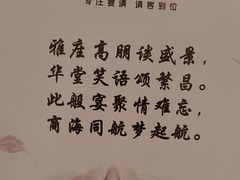 专注宴请 请客到位
雅座高朋谈盛景，
华堂笑语颂繁昌。
此般宴聚情难忘，
商海同航梦起航。